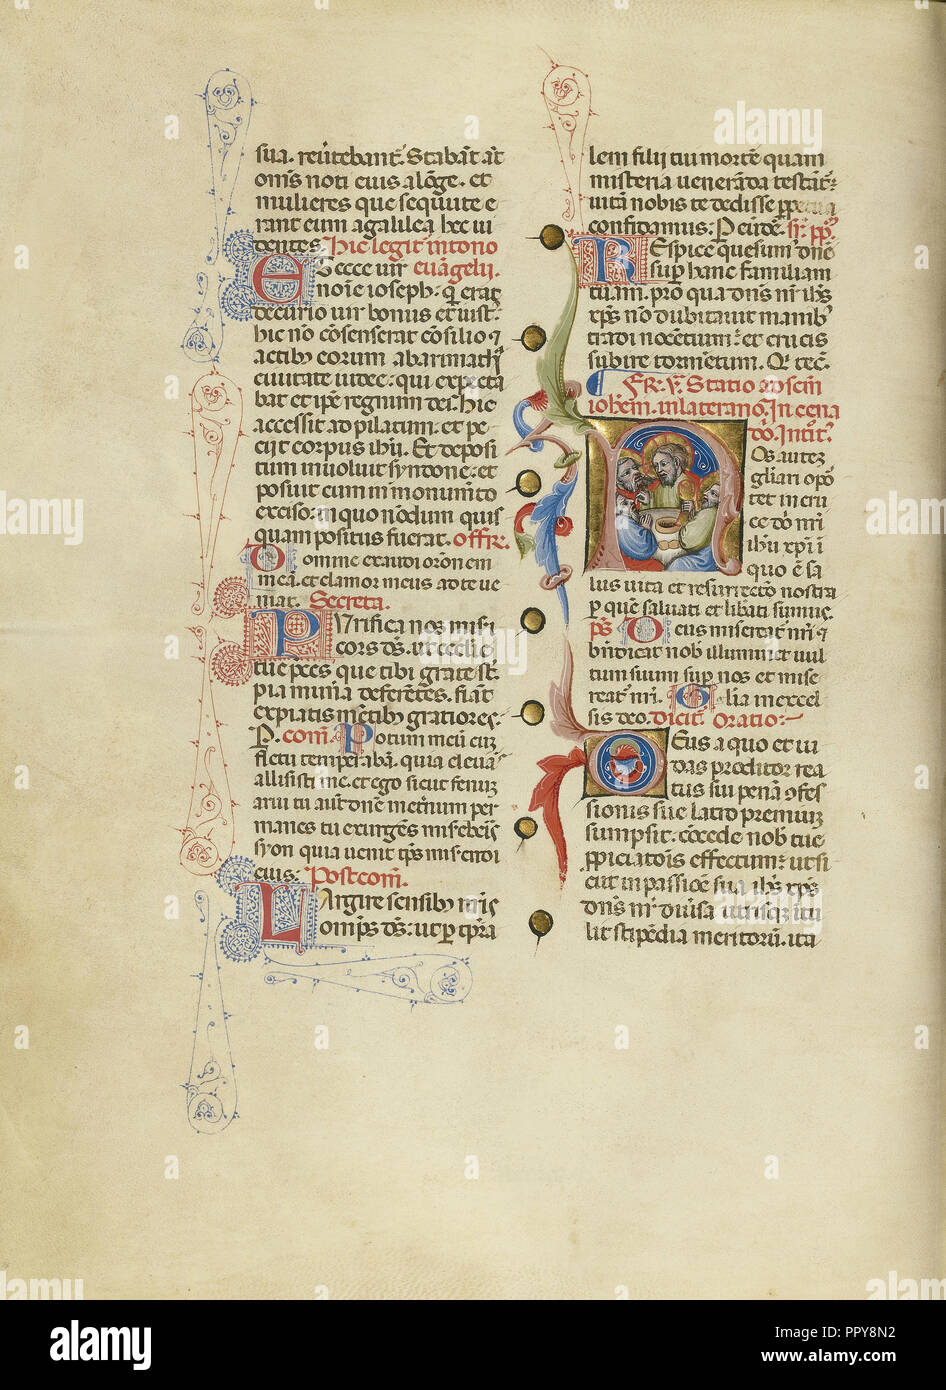 sua. reu̅tebant᷑. Staba̅t au̅t
om̅s noti eius alo̅ge. et
mulieres que sequute e
rant eum a galilea hec ui
dentes. Hic legit᷑ in tono
ESecce uir eua̅gelii.
no̅ie ioseph. q̅ erat
decurio uir bonus et iust᷒.
hic no̅ co̅senserat co̅silio ⁊
actib᷒ eorum ab arimathi
ciuitate iudee: qui expecta
bat et ip̅e regnum dei. hic
accessit ad pilatum. et pe
ciit corpus ih̅u. Et deposi
tum inuoluit syndone. et
posuit eum in monum̅to
exciso. in quo no̅dum quis
quam positus fuerat. offer̅.
Domine exaudi oro̅nem
mea̅. et clamor meus ad te ue
niat. Secreta.
PUrifica nos mis̅i
cors d̅s. ut eccl̅ie
tue p̅ces que tibi grate s̅t.
pia mun̅a defere̅tes. fia̅t
expiatis me̅tib᷒ gratiores.
P̲. com̅. Potum meu̅ cu̅
fletu temperaba̅. quia eleua̅s
allisisti me. et ego sicut fenu̅
arui tu aut᷑ do̅ne in et̅num per
manes tu exurge̅s mis̅eb̅is
syon quia uenit t̅ps mis̅e̅di
eius. Postcom̅.
LArgire sensib᷒ n̅ris
om̅ps d̅s: ut p̲ t̅pra
lem filij tui morte̅ quam
misteria uenera̅da testa̅t᷑:
uita̅ nobis te dedisse p̲petua̅
confidamus. P̲ eu̅de̅. sr̅. pp̅.
REspice quesum᷒ d̅ne
sup̲ hanc familiam
tuam. pro qua d̅ns n̅r ih̅s
xp̅s no̅ dubitauit manib᷒
tradi noce̅tium: et crucis
subire torme̅tum. Q̅ tec̅.
Fr̅. v̅. Statio ad s̅c̅m
ioh̅em. in laterano. In cena
do̅. Intr̅oit᷒.
NOs aute̅
gl̅iari opo̅
tet in cru
ce d̅o̅ n̅ri
ih̅u xp̅i i̅
quo e̅ sa
lus uita et resurrectio nostra
p̲ que̅ saluati et lib̅ati sumus.
ps̅ Deus misereat᷑ n̅ri ⁊
b̅ndicat nob̅ illuminet uul
tum suum sup̲ nos et mise
reat᷑ n̅ri. Glia in excel
sis deo. dicit᷑. Oratio:~
DEus a quo et iu
das proditor rea
tus sui pena̅ ⁊ ꝯfes
sionis sue latro premiu̅
sumpsit. co̅cede nob̅ tue
p̲piciato̅is effectum: ut si
cut in passio̅e sua ih̅s xp̅s
d̅ns n̅r diu̅sa utrisq̅ i̅tu
lit stipe̅dia meritoru̅. ita
alamy
Image ID: PPY8N2
www.alamy.com